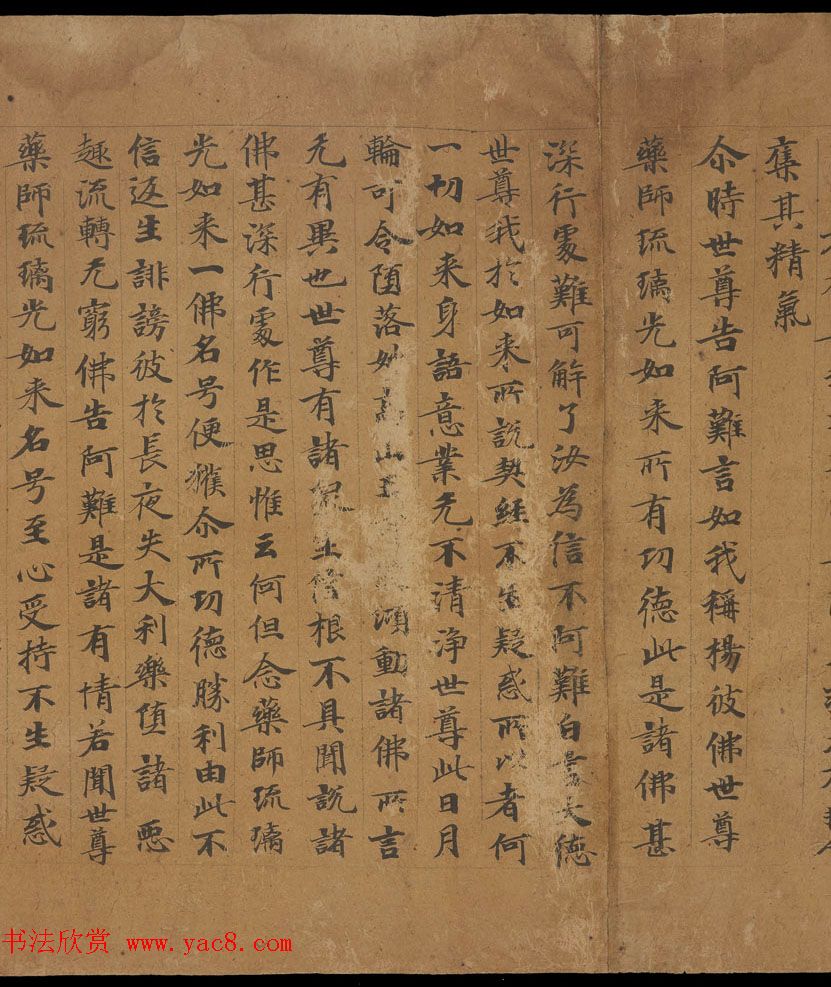 奪其精氣
尒時世尊告阿難言如我稱揚彼佛世尊
藥師琉璃光如来所有功德此是諸佛甚
深行處難可解了汝為信不阿難白言大德
世尊我於如来所説契經不生疑惑所以者何
一切如来身語意業无不清浄世尊此日月
輪可令堕落妙高山傾動諸佛所言
无有異也世尊有諸衆生信根不具聞説諸
佛甚深行處作是思惟云何但念藥師琉璃
光如来一佛名号便獲尒所功德勝利由此不
信返生誹謗彼於長夜失大利樂堕諸惡
趣流轉无窮佛告阿難是諸有情若聞世尊
藥師琉璃光如来名号至心受持不生疑惑
书法欣赏 www.yac8.com